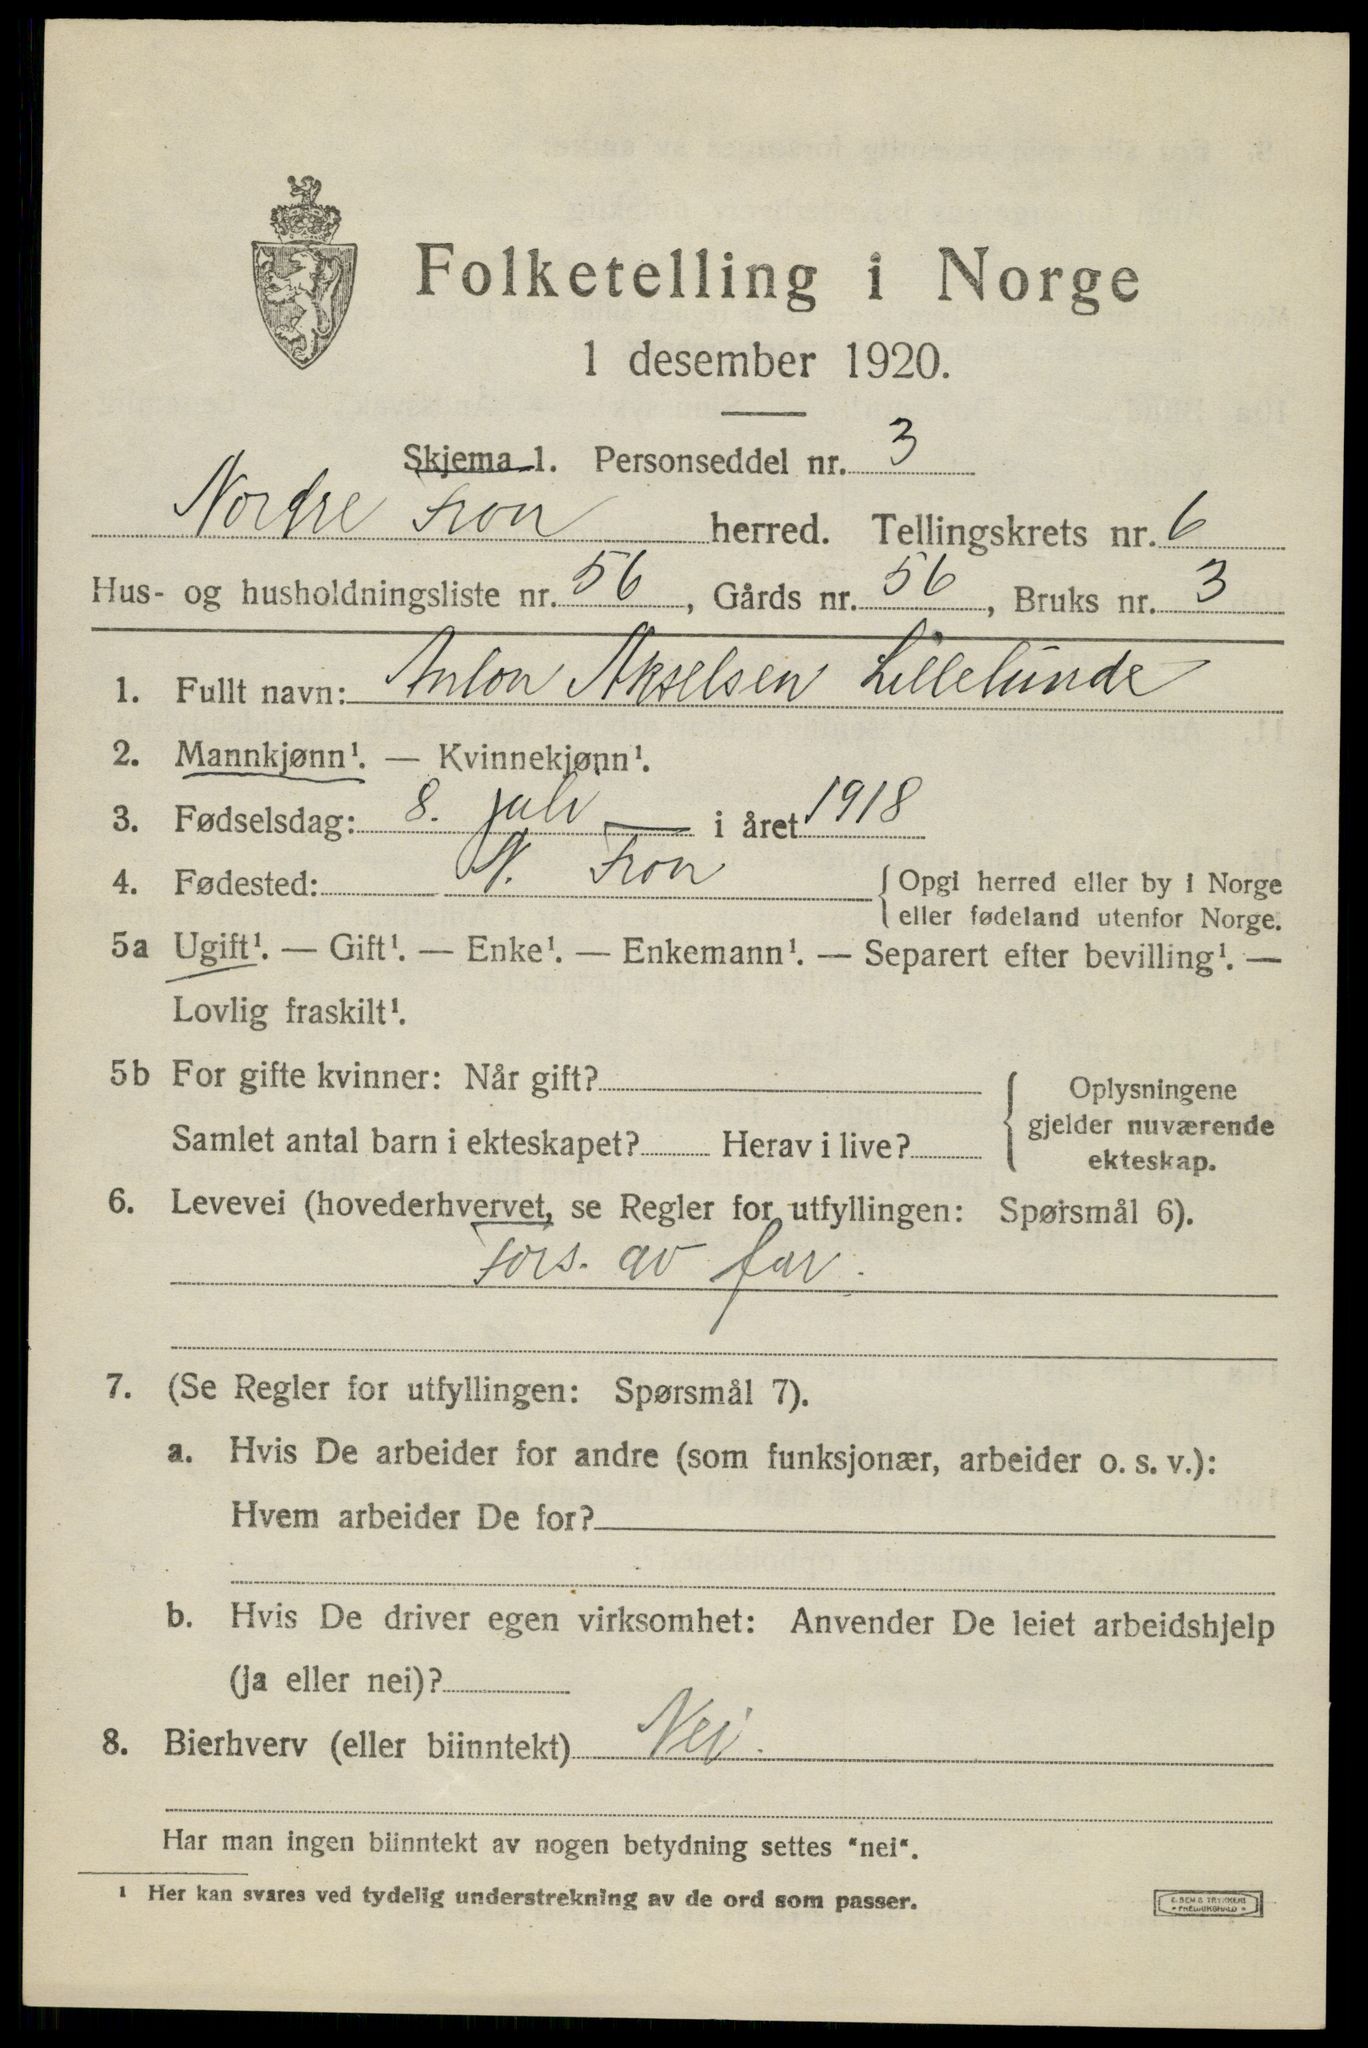 Folketelling i Norge
1 desember 1920.
Skjema 1. Personseddel nr. 3
Nordre Fron herred. Tellingskrets nr. 6
Hus- og husholdningsliste nr. 56, Gårds nr. 56, Bruks nr. 3
1. Fullt navn: Anton Akselsen Lillelunde
2. Mannkjønn¹. — Kvinnekjønn¹.
3. Fødselsdag: 8. juli i året 1918
4. Fødested: N. Fron { Opgi herred eller by i Norge
eller fødeland utenfor Norge.
5a Ugift¹. — Gift¹. — Enke¹. — Enkemann¹. — Separert efter bevilling¹. —
Lovlig fraskilt¹.
5b For gifte kvinner: Når gift?
Samlet antal barn i ekteskapet? Herav i live?
{ Oplysningene
gjelder nuværende
ekteskap.
6. Levevei (hovederhvervet, se Regler for utfyllingen: Spørsmål 6).
Fors. av far.
7. (Se Regler for utfyllingen: Spørsmål 7).
a. Hvis De arbeider for andre (som funksjonær, arbeider o. s. v.):
Hvem arbeider De for?
b. Hvis De driver egen virksomhet: Anvender De leiet arbeidshjelp
(ja eller nei)?
8. Bierhverv (eller biinntekt) Nei.
Har man ingen biinntekt av nogen betydning settes "nei".
¹ Her kan svares ved tydelig understrekning av de ord som passer.
E. SEM'S TRYKKERI
FREDRIKSHALD